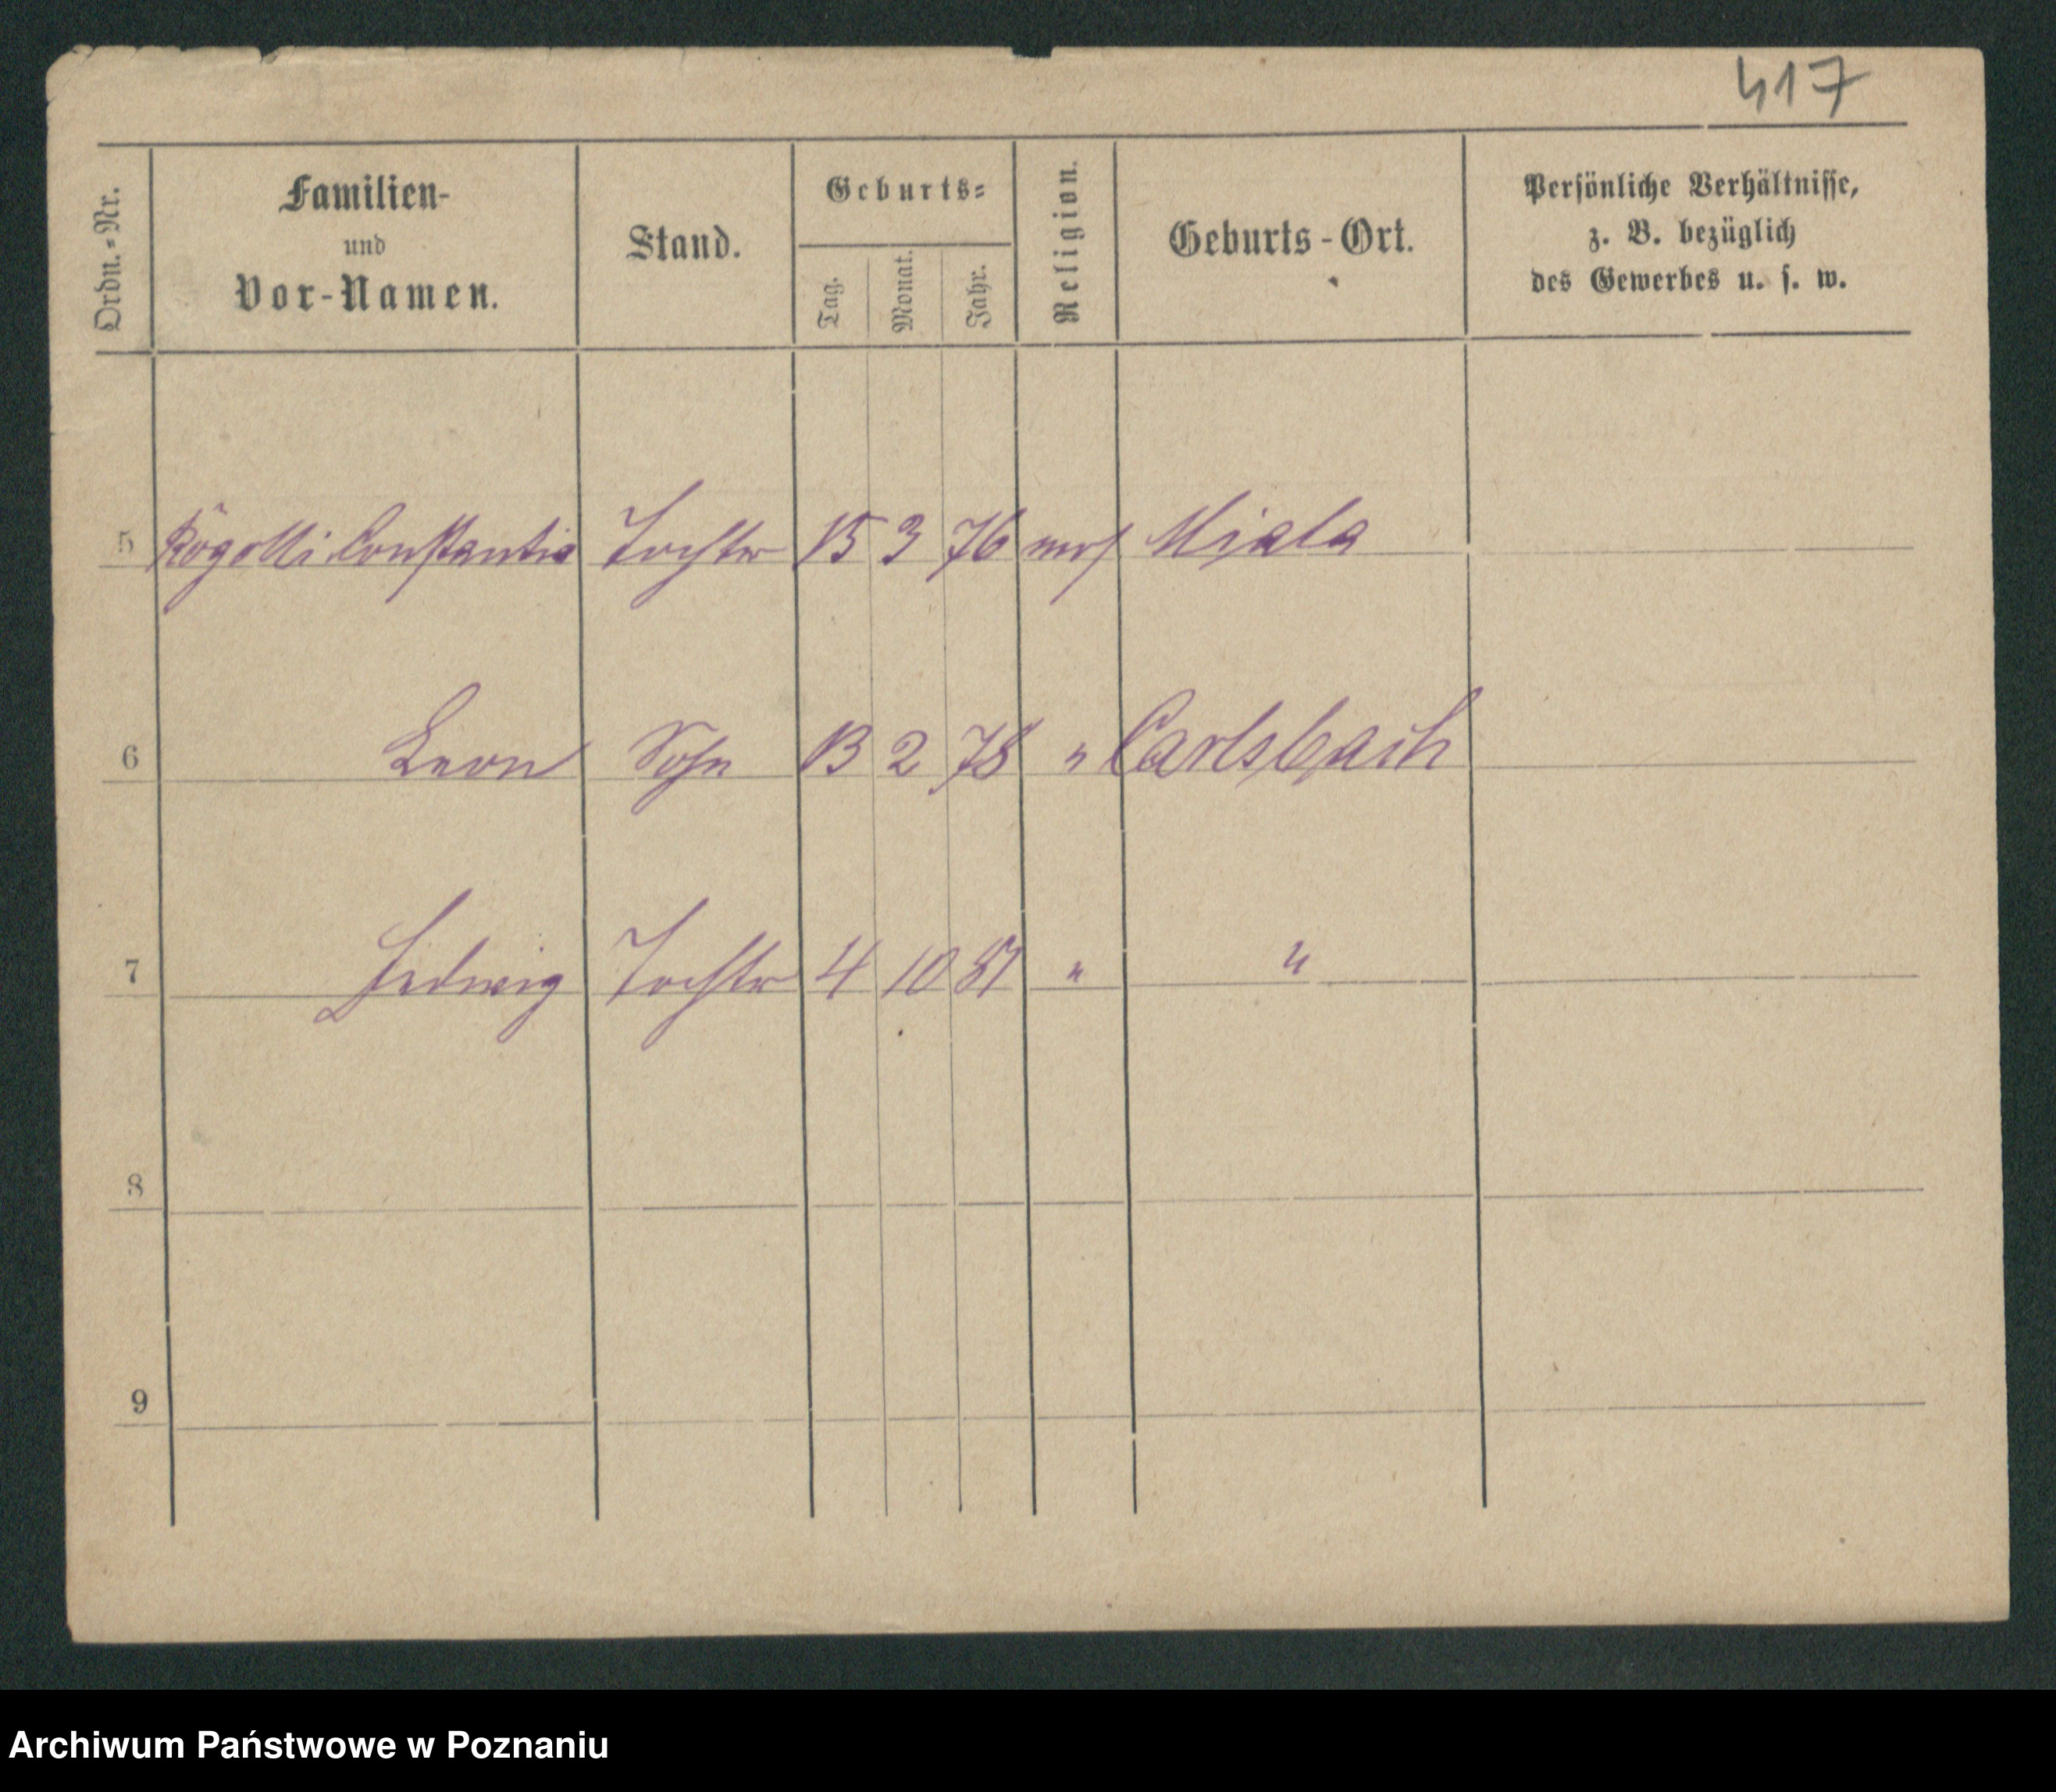 417
Ordn.=Nr.
Familien-
und
Vor-Namen.
Stand.
Geburts=
Tag.
Monat.
Jahr.
Religion.
Geburts-Ort.
Persönliche Verhältnisse,
z. B. bezüglich
des Gewerbes u. s. w.
5 Constantia Tochter 15 3 76 Miala
6 Leon Sohn 13 2 78 " Carlsbach
7 Hedwig Tochter 4 10 87 " "
8
9
Archiwum Państwowe w Poznaniu